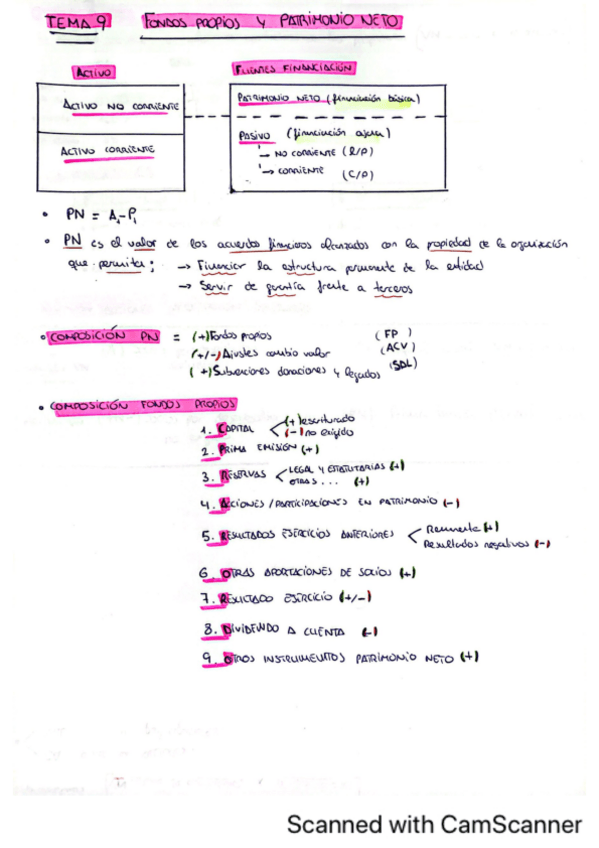 TEMA 9 FONDOS PROPIOS Y PATRIMONIO NETO
ACTIVO
FUENTES FINANCIACIÓN
ACTIVO NO CORRIENTE
ACTIVO CORRIENTE
PATRIMONIO NETO (financiación básica)
PASIVO (financiación ajena)
→ NO CORRIENTE (L/P)
→ CORRIENTE (C/P)
• PN = A - P
• PN es el valor de los acuerdos financieros alcanzados con la propiedad de la organización
que permiten: → Financiar la estructura permanente de la entidad
→ Servir de garantía frente a terceros
• COMPOSICIÓN PN = (+) Fondos propios (FP)
(+/-) Ajustes cambio valor (ACV)
(+) Subvenciones donaciones y legados (SDL)
• COMPOSICIÓN FONDOS PROPIOS
1. CAPITAL (+) escriturado
(-) no exigido
2. PRIMA EMISIÓN (+)
3. RESERVAS LEGAL Y ESTATUTARIAS (+)
OTRAS ... (+)
4. ACCIONES / PARTICIPACIONES EN PATRIMONIO (-)
5. RESULTADOS EJERCICIOS ANTERIORES Remanente (+)
Resultados negativos (-)
6. OTRAS APORTACIONES DE SOCIOS (+)
7. RESULTADO EJERCICIO (+/-)
8. DIVIDENDO A CUENTA (-)
9. OTROS INSTRUMENTOS PATRIMONIO NETO (+)
Scanned with CamScanner